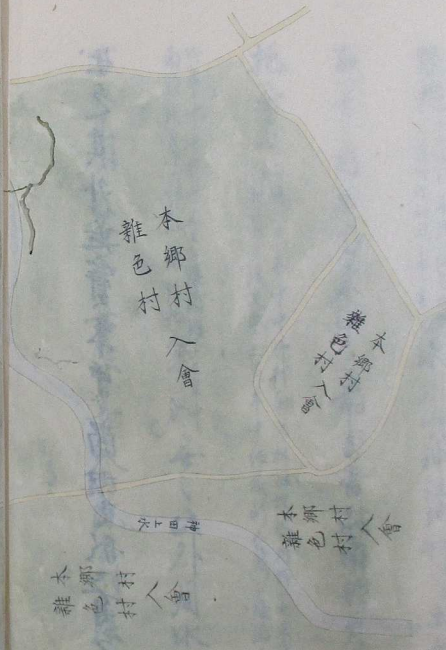 本郷村
雑色村
入會
本郷村
雑色村
入會
神田上水
本郷村
雑色村
入會
本郷村
雑色村
入會